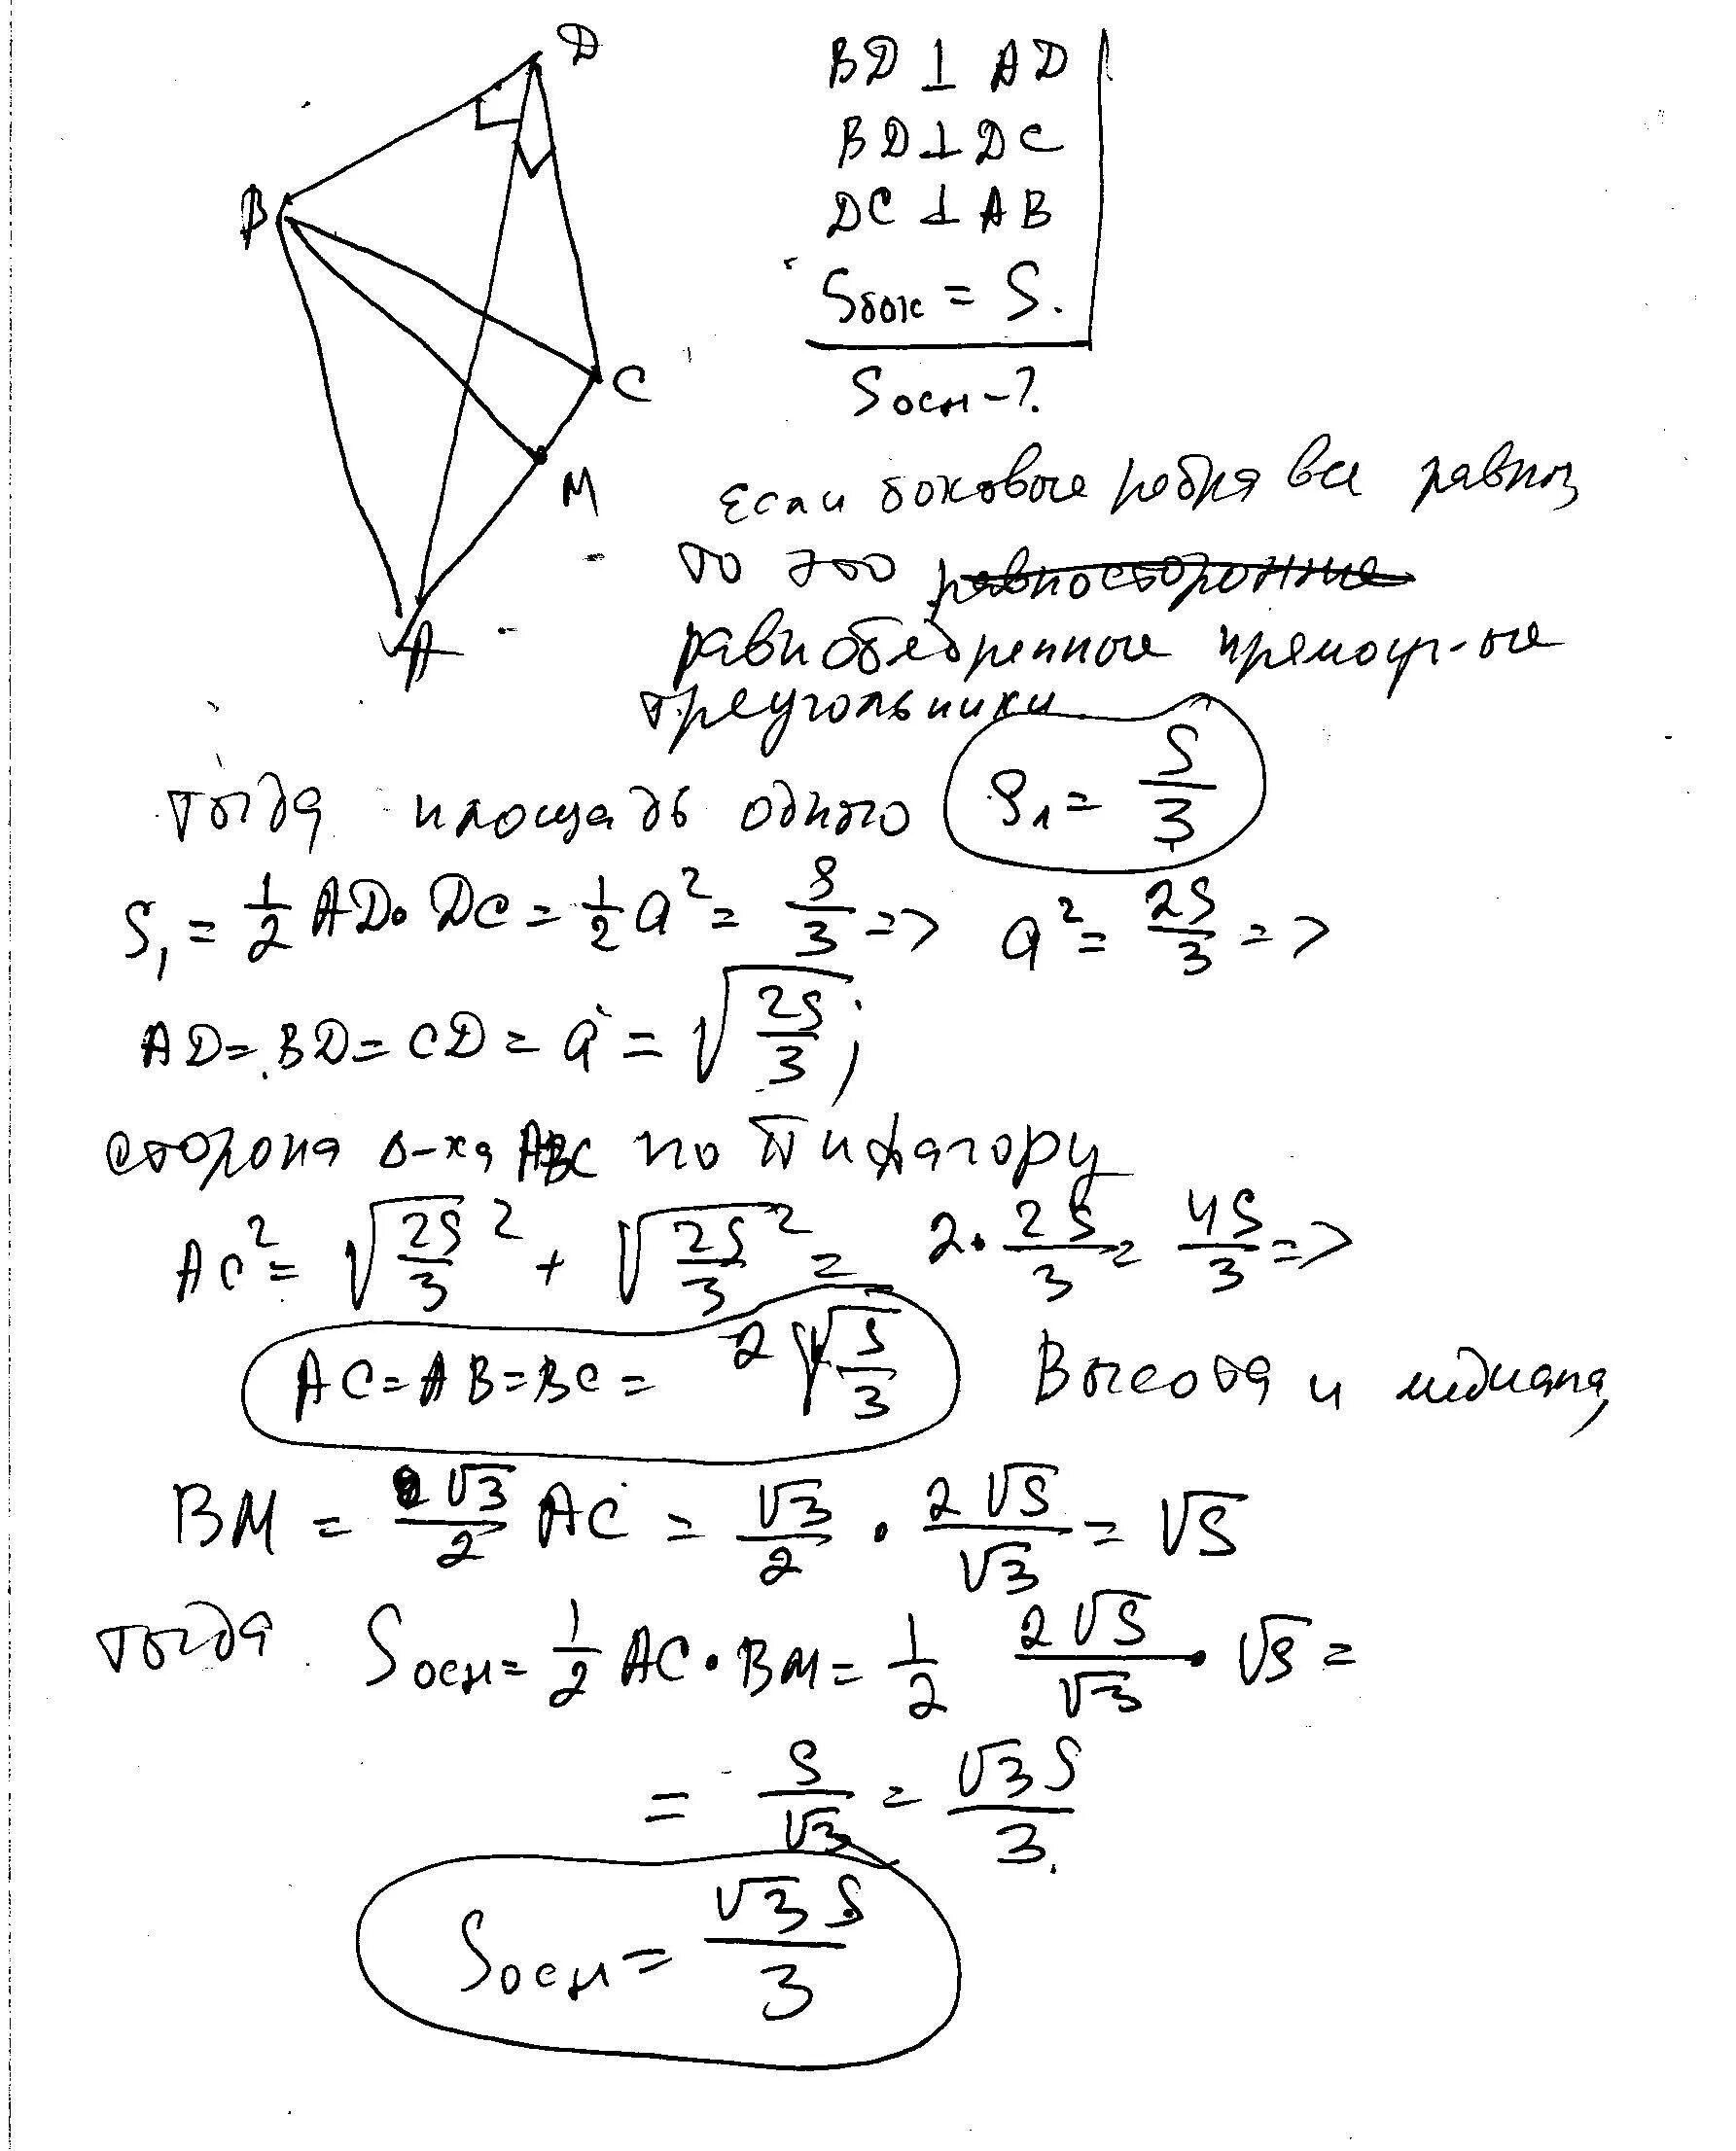 D
BD ⊥ AD
BD ⊥ DC
B
DC ⊥ AB
Sбок = S.
C
Sосн - ?
M
Если боковые ребра все равны
то это равносторонние
A
равнобедренные прямоуг-ые
треугольники.
тогда площадь одного S₁ = S/3
S₁ = 1/2 AD · DC = 1/2 a² = S/3 => a² = 2S/3 =>
AD = BD = CD = a = √(2S/3);
сторона Δ-ка ABC по Пифагору
AC² = √(2S/3)² + √(2S/3)² = 2 · 2S/3 = 4S/3 =>
AC = AB = BC = 2√(S/3) Высота и медиана,
BM = √3/2 AC = √3/2 · 2√S/√3 = √S
тогда Sосн = 1/2 AC · BM = 1/2 2√S/√3 · √S =
= S/√3 = √3S/3.
Sосн = √3S/3